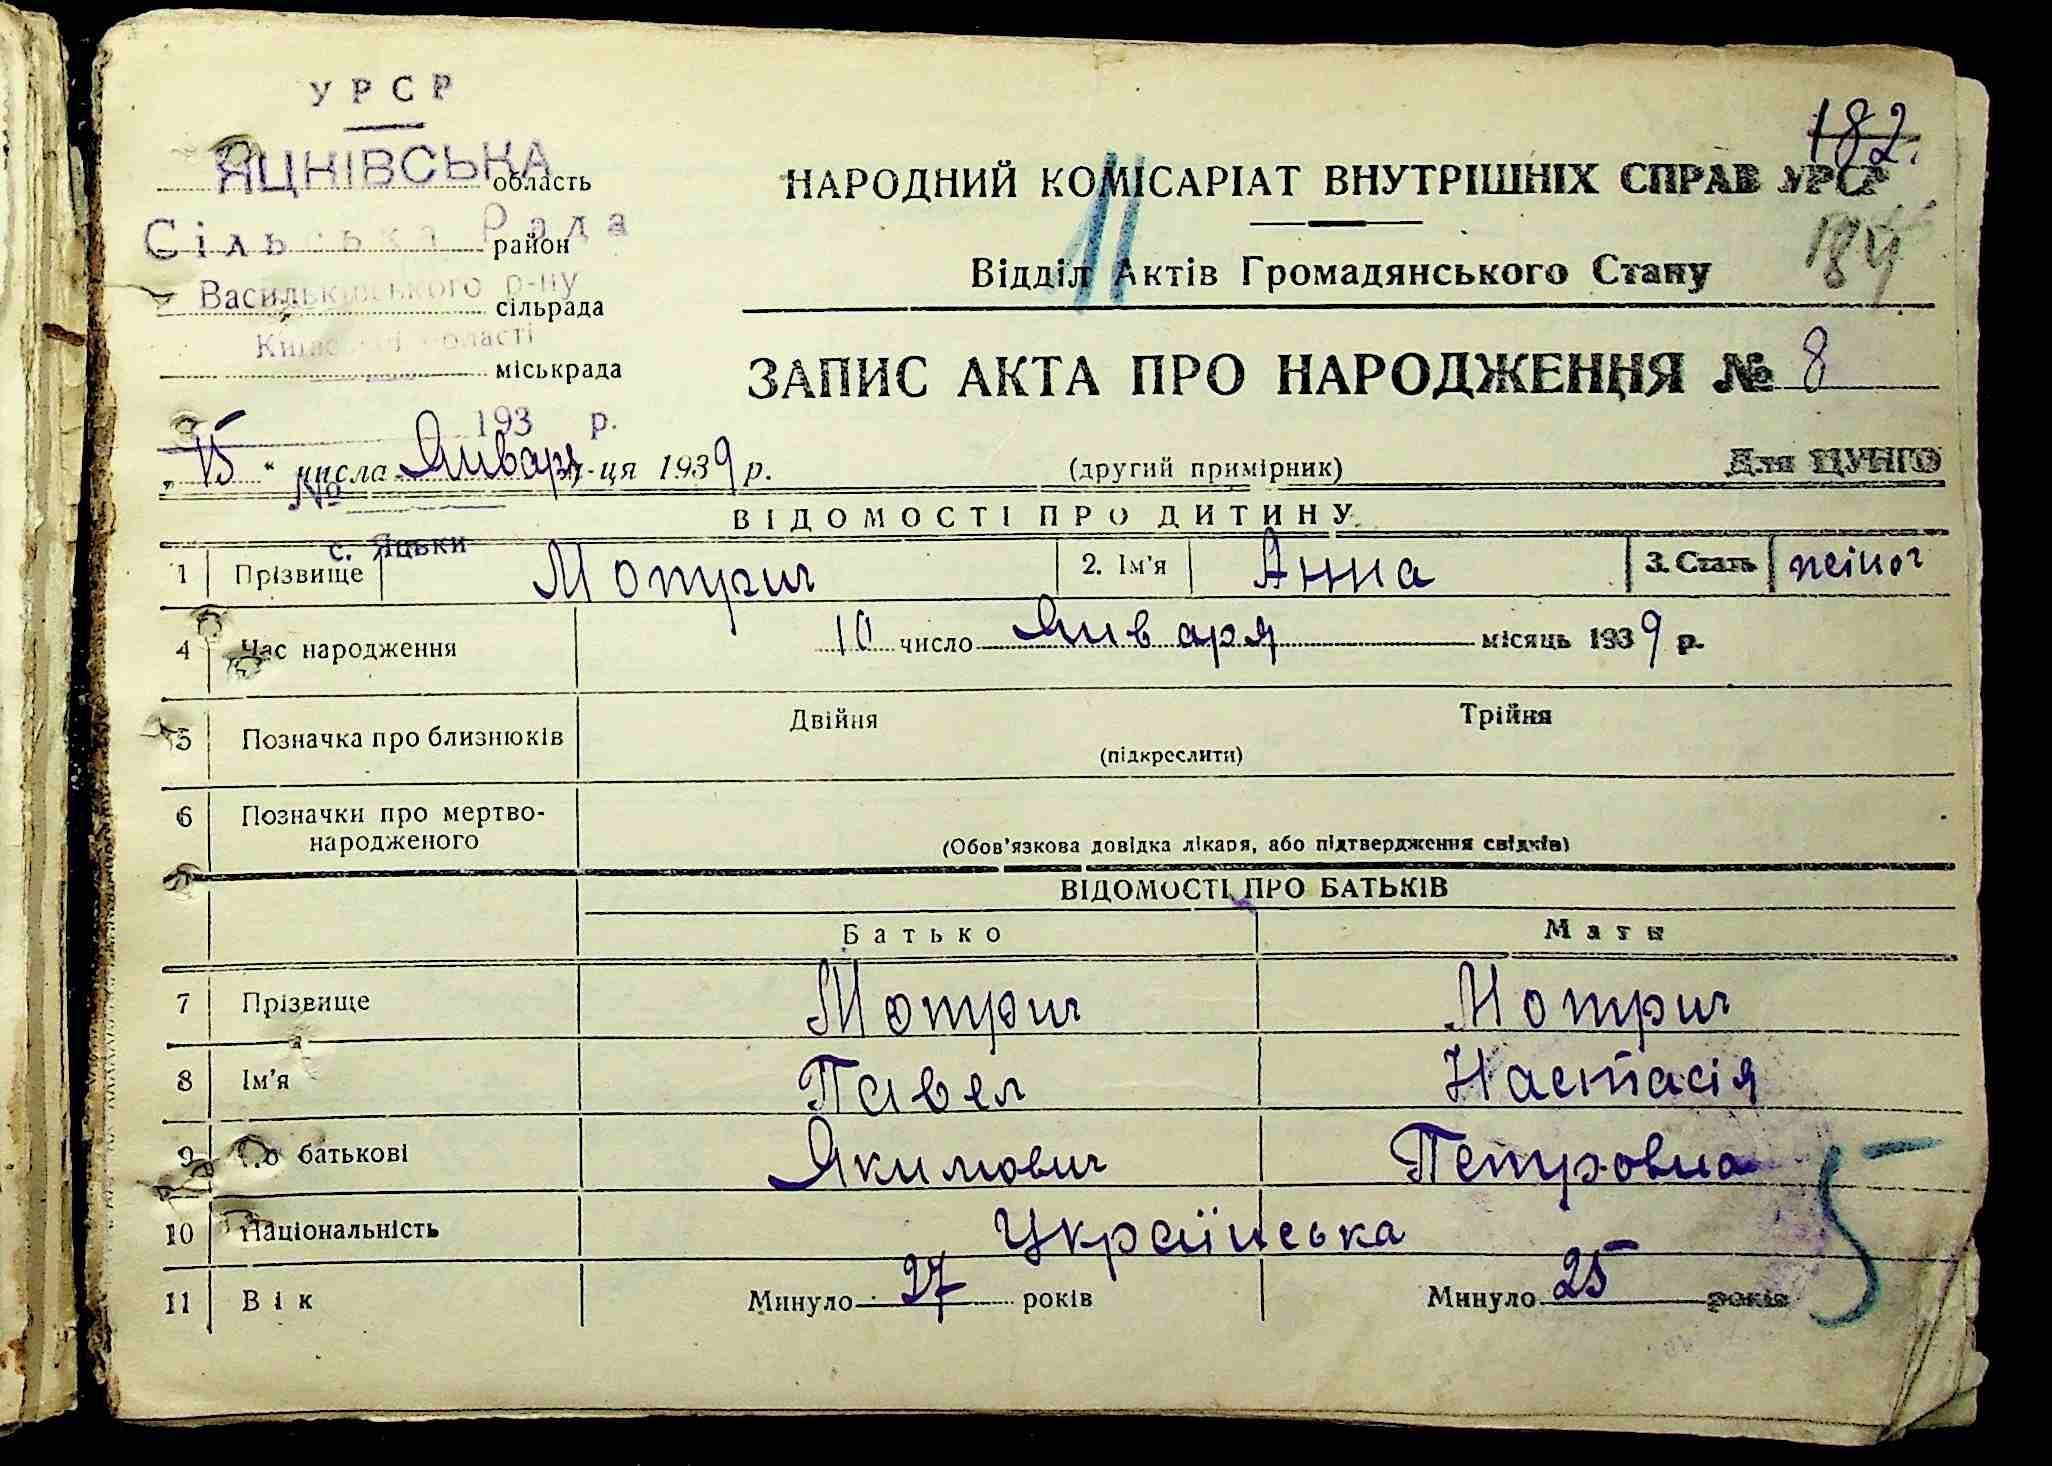 УРСР
182.
ЯЦНІВСЬКА область
НАРОДНИЙ КОМІСАРІАТ ВНУТРІШНІХ СПРАВ УРСР
11
Сільська Рада район
184
Васильківського р-ну сільрада
Відділ Актів Громадянського Стану
Київської області
міськрада
ЗАПИС АКТА ПРО НАРОДЖЕННЯ № 8
193 р.
„15“ числа Января м-ця 1939 р.
(другий примірник)
Для ЦУНГО
№
ВІДОМОСТІ ПРО ДИТИНУ
с. Яцьки
1 Прізвище Мотрич 2. Ім'я Анна 3. Стать жіноч
4 Час народження 10 число Января місяць 1939 р.
5 Позначка про близнюків Двійня Трійня
(підкреслити)
6 Позначки про мертво-
народженого
(Обов'язкова довідка лікаря, або підтвердження свідків)
ВІДОМОСТІ ПРО БАТЬКІВ
Батько Мати
7 Прізвище Мотрич Мотрич
8 Ім'я Павел Настасія
9 По батькові Якимович Петровна
10 Національність Українська
11 Вік Минуло 27 років Минуло 25 років
5